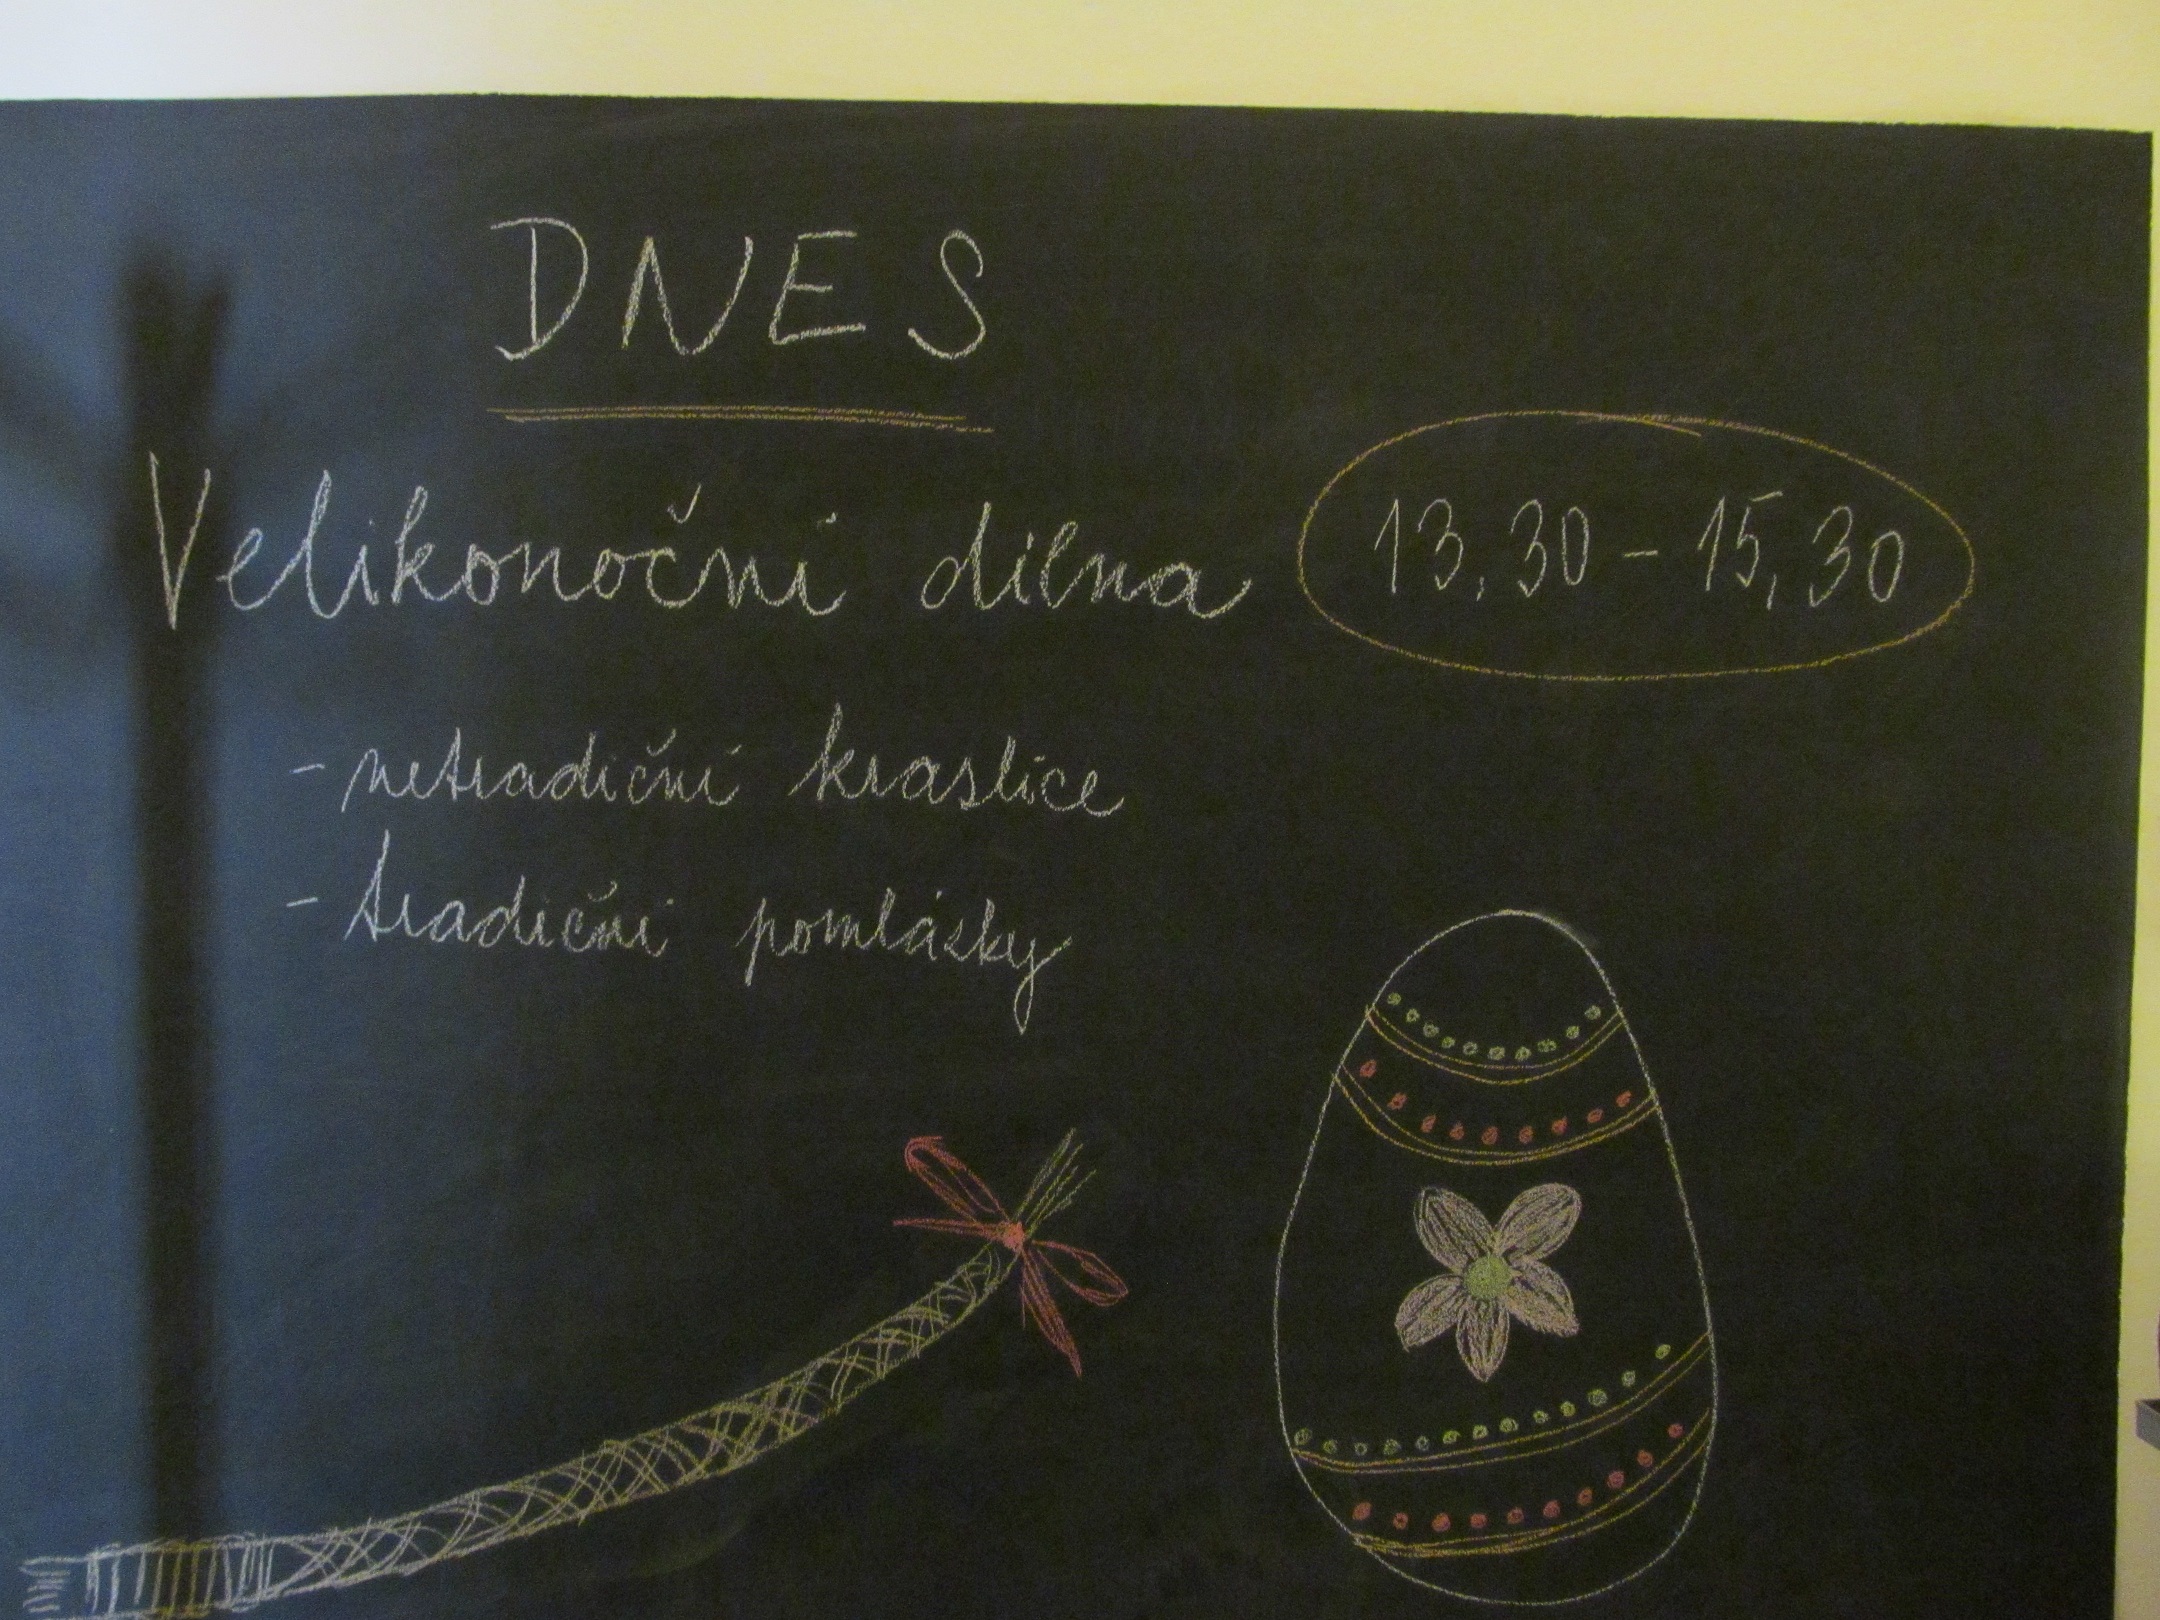 DNES
Velikonoční dílna 13,30 - 15,30
- netradiční kraslice
- tradiční pomlázky